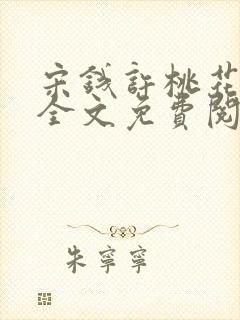 宋钱許桃花
全文免費閱
朱寧寧